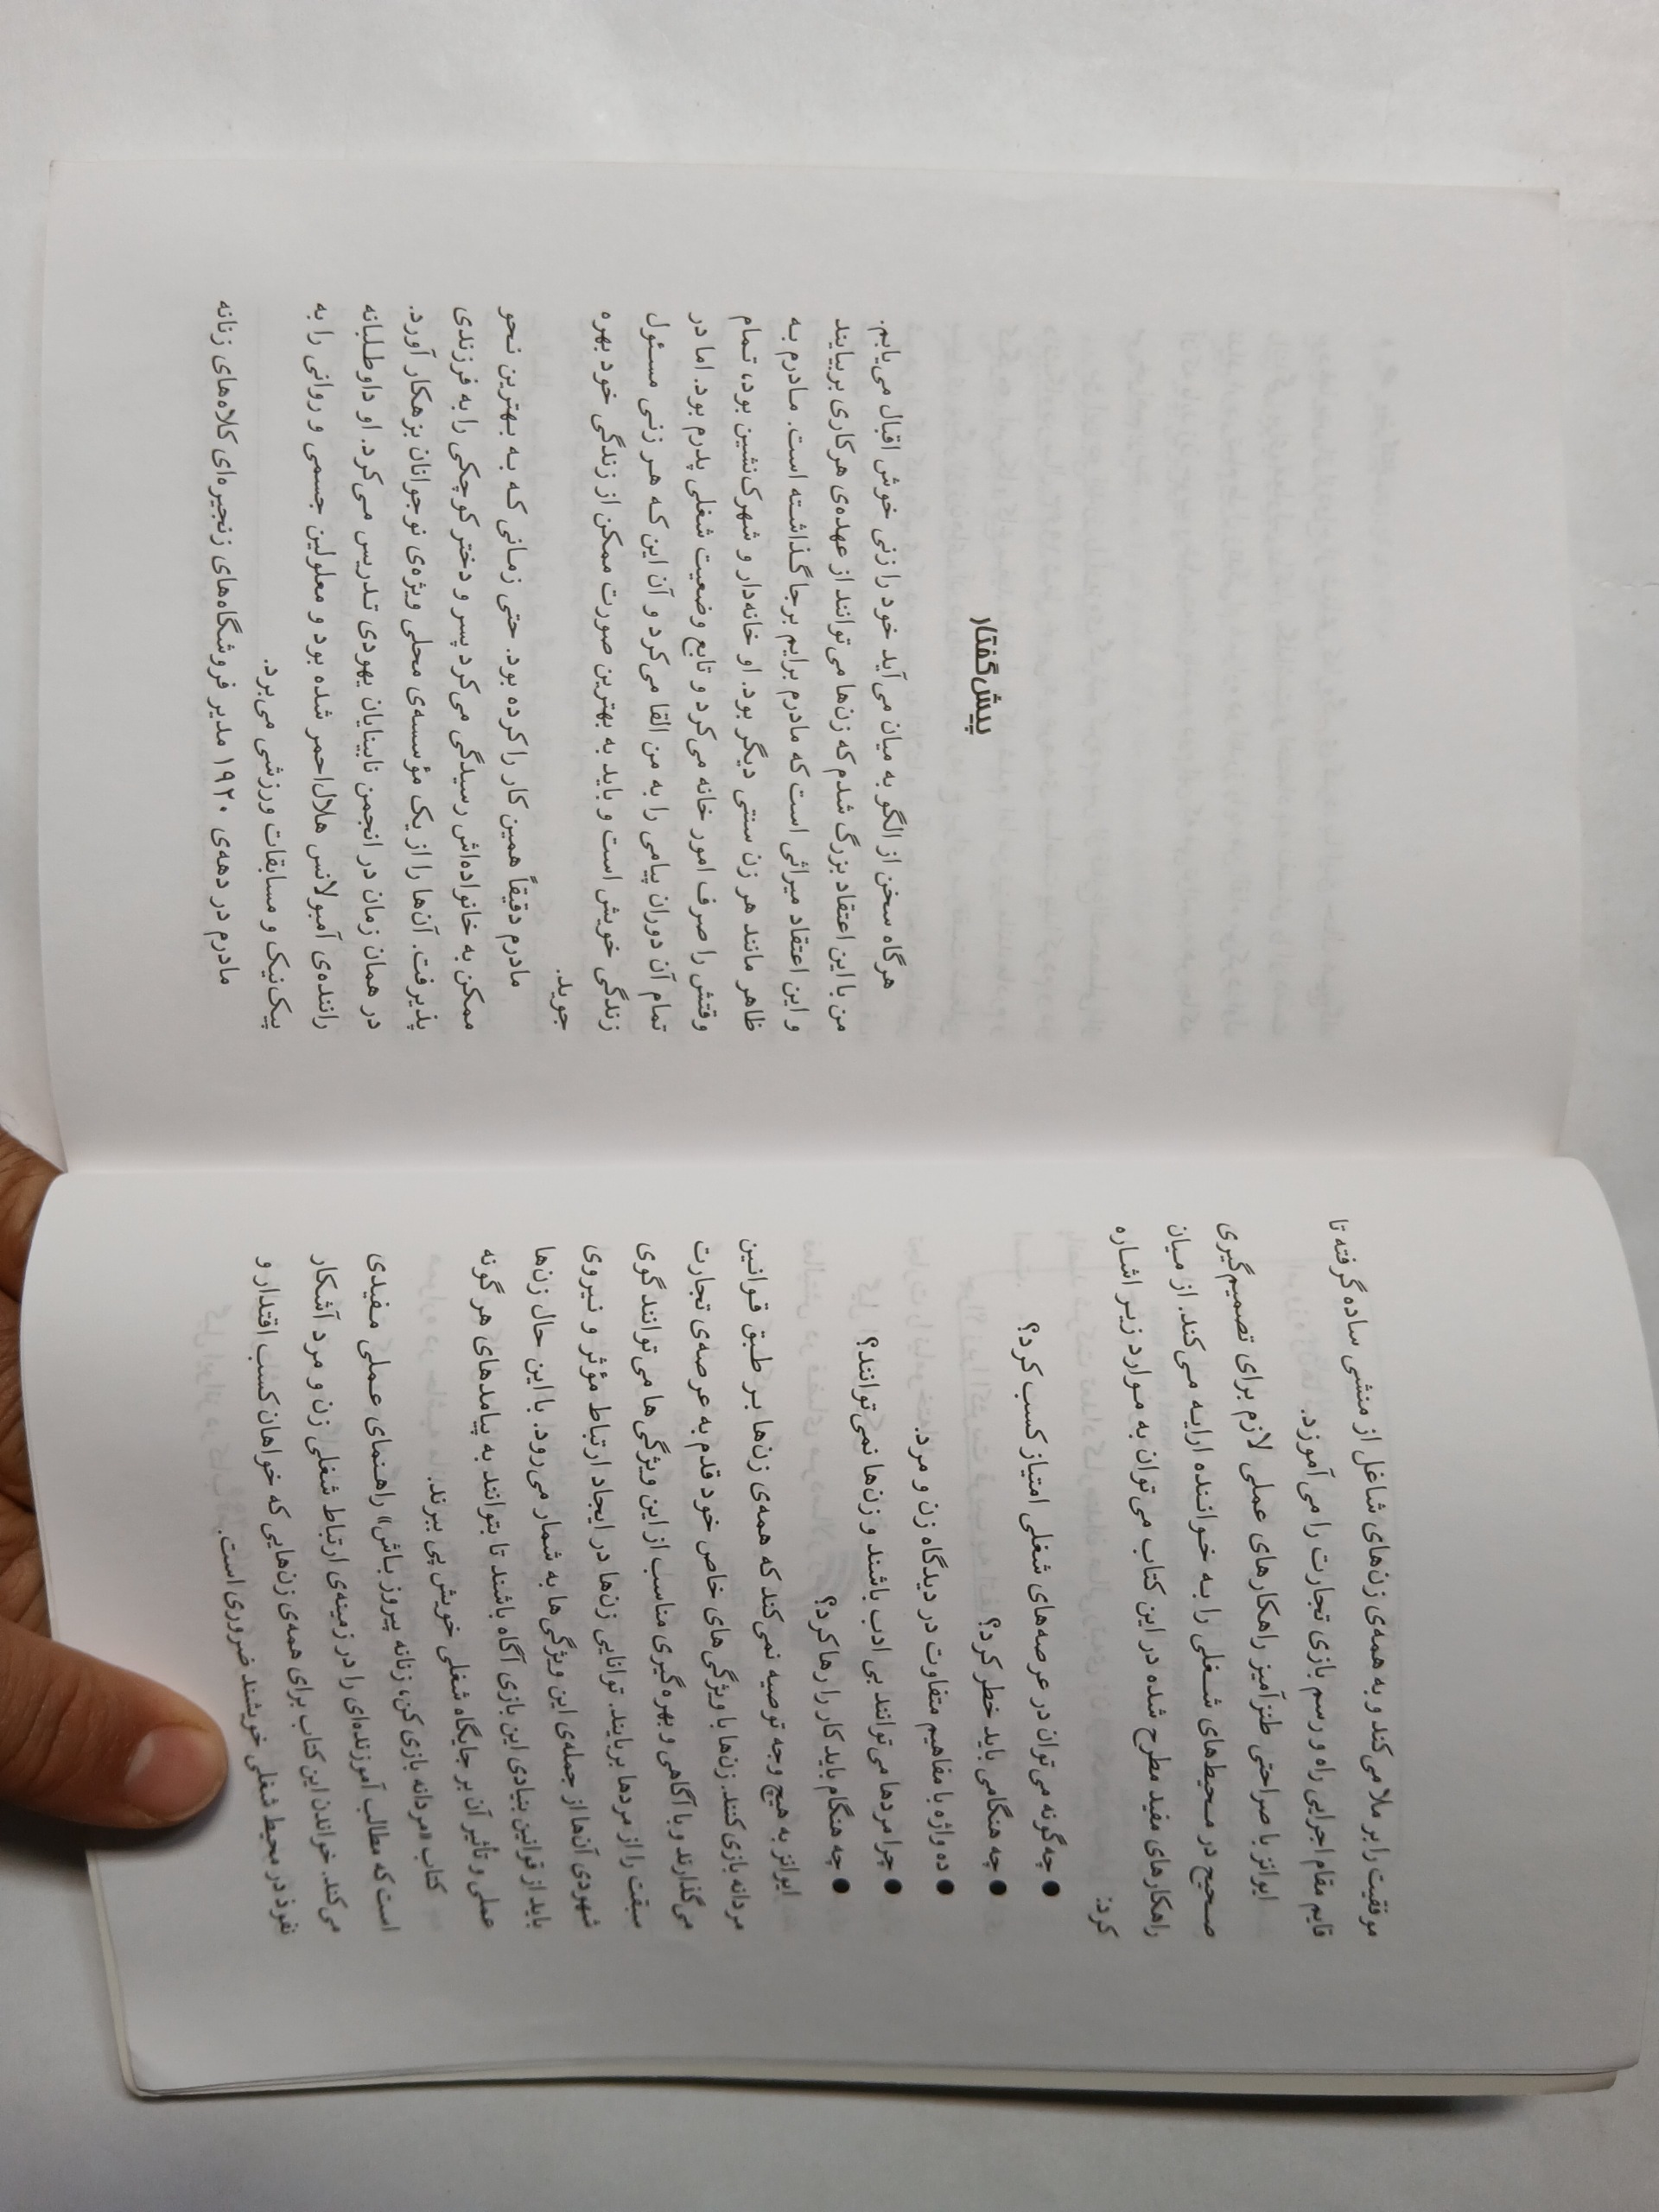 موفقیت را بر ملا می‌کند و به همه‌ی زن‌های شاغل از منشی ساده گرفته تا
قایم مقام اجرایی راه و رسم بازی تجارت را می‌آموزد.
ایوانز با صراحتی طنزآمیز راهکارهای عملی لازم برای تصمیم‌گیری
صحیح در محیط‌های شغلی را به خواننده ارایه می‌کند. از میان
راهکارهای مفید مطرح شده در این کتاب می‌توان به موارد زیر اشاره
کرد:
● چه‌گونه می‌توان در عرصه‌های شغلی امتیاز کسب کرد؟
● چه هنگامی باید خطر کرد؟
● ده واژه با مفاهیم متفاوت در دیدگاه زن و مرد.
● چرا مردها می‌توانند بی ادب باشند و زن‌ها نمی‌توانند؟
● چه هنگام باید کار را رها کرد؟
ایوانز به هیچ وجه توصیه نمی‌کند که همه‌ی زن‌ها بر طبق قوانین
مردانه بازی کنند. زن‌ها با ویژگی‌های خاص خود قدم به عرصه‌ی تجارت
می‌گذارند و با آگاهی و بهره‌گیری مناسب از این ویژگی‌ها می‌توانند گوی
سبقت را از مردها بربایند. توانایی زن‌ها در ایجاد ارتباط مؤثر و نیروی
شهودی آن‌ها از جمله‌ی این ویژگی‌ها به شمار می‌رود. با این حال زن‌ها
باید از قوانین بنیادی این بازی آگاه باشند تا بتوانند به پیامدهای هر گونه
عملی و تأثیر آن بر جایگاه شغلی خویش پی ببرند.
کتاب «مردانه بازی کن، زنانه پیروز باش» راهنمای عملی مفیدی
است که مطالب آموزنده‌ای را در زمینه‌ی ارتباط شغلی زن و مرد آشکار
می‌کند. خواندن این کتاب برای همه‌ی زن‌هایی که خواهان کسب اقتدار و
نفوذ در محیط شغلی خویشند ضروری است.
پیش‌گفتار
هرگاه سخن از الگو به میان می‌آید خود را زنی خوش اقبال می‌یابم.
من با این اعتقاد بزرگ شدم که زن‌ها می‌توانند از عهده‌ی هر کاری بربیایند
و این اعتقاد میراثی است که مادرم برایم برجا گذاشته است. مادرم به
ظاهر مانند هر زن سنتی دیگر بود. او خانه‌دار و شهرک‌نشین بود، تمام
وقتش را صرف امور خانه می‌کرد و تابع وضعیت شغلی پدرم بود. اما در
تمام آن دوران پیامی را به من القا می‌کرد و آن این که هر زنی مسئول
زندگی خویش است و باید به بهترین صورت ممکن از زندگی خود بهره
جوید.
مادرم دقیقاً همین کار را کرده بود. حتی زمانی که به بهترین نحو
ممکن به خانواده‌اش رسیدگی می‌کرد پسر و دختر کوچکی را به فرزندی
پذیرفت. آن‌ها را از یک مؤسسه‌ی محلی ویژه‌ی نوجوانان بزهکار آورد.
در همان زمان در انجمن نابینایان یهودی تدریس می‌کرد. او داوطلبانه
راننده‌ی آمبولانس هلال‌احمر شده بود و معلولین جسمی و روانی را به
پیک‌نیک و مسابقات ورزشی می‌برد.
مادرم در دهه‌ی ۱۹۲۰ مدیر فروشگاه‌های زنجیره‌ای کلاه‌های زنانه